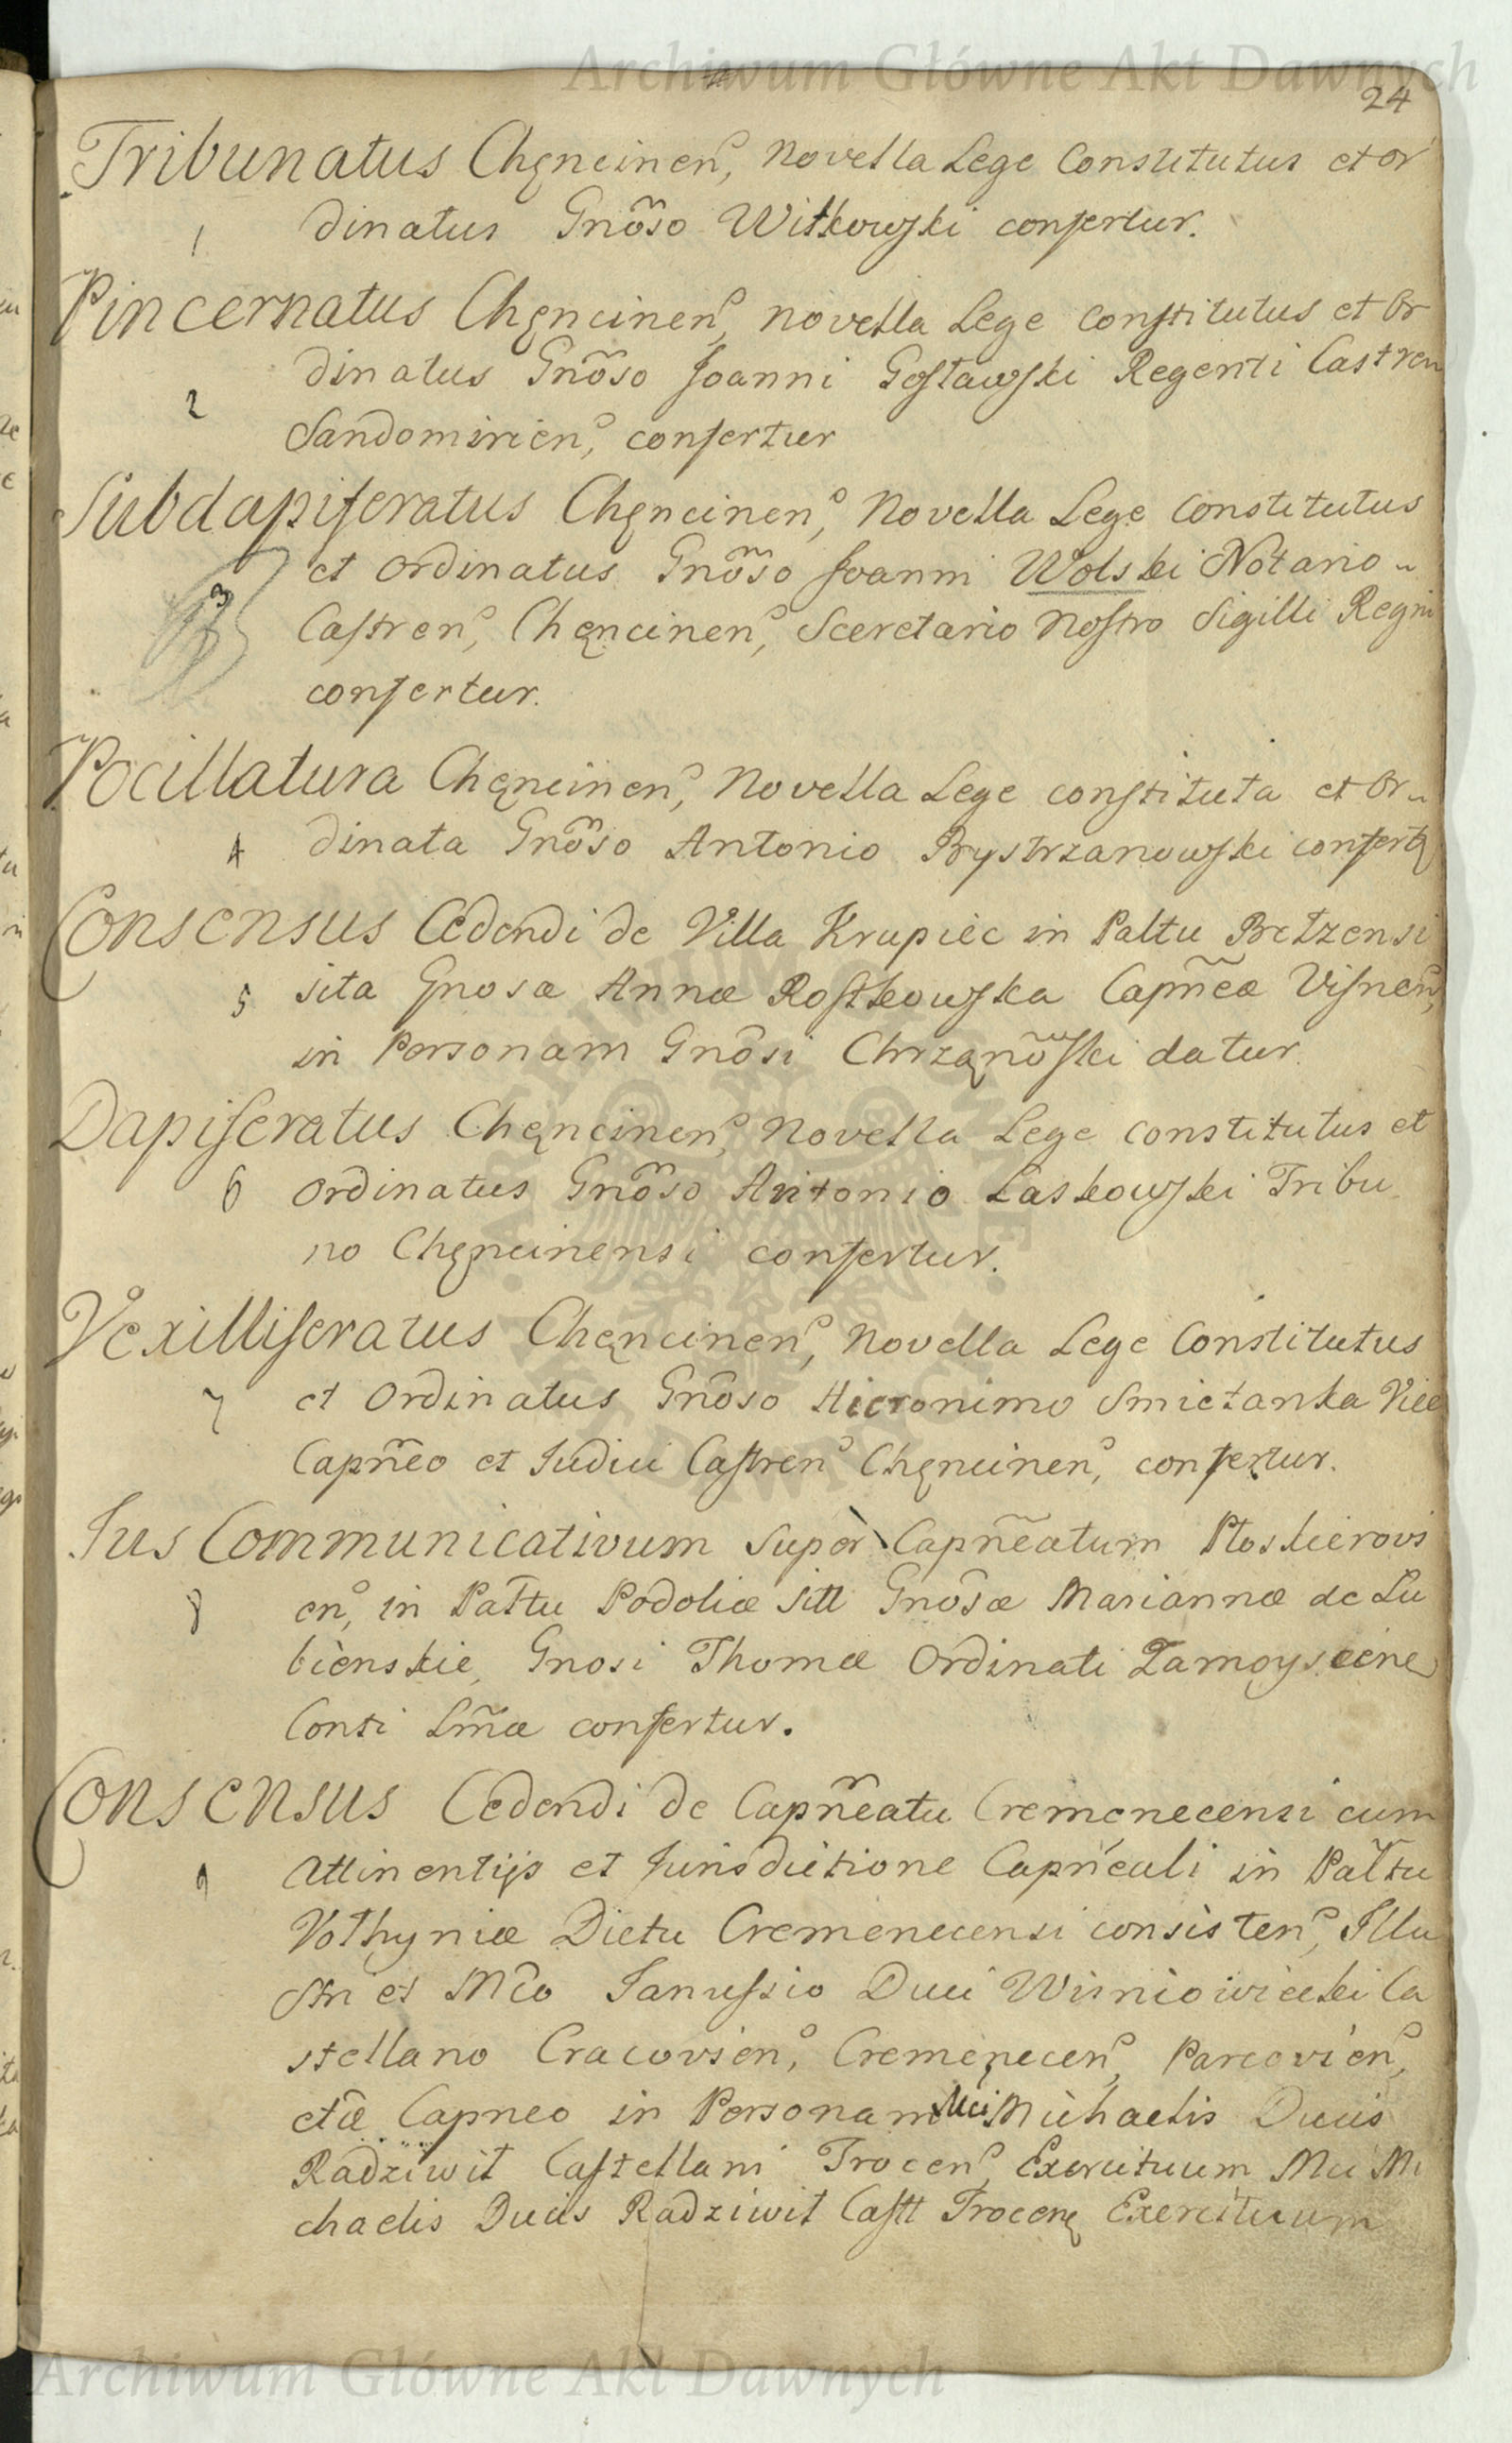 Archiwum Główne Akt Dawnych
24
Tribunatus Chęncinen, Novella Lege Constitutus et or
1 dinatus Gnõso Witkowski confertur.
Pincernatus Chęncinen, novella Lege constitutus et Or
dinatus Gnõso Joanni Gosławski Regenti Castren
2
Sandomirien, confertur
Subdapiferatus Chęncinen, Novella Lege Constitutus
et Ordinatus Gnõso Joanni Wolski Notario
3
Castren, Chęncinen, Secretario Nostro Sigilli Regni
confertur.
Pocillatura Chęncinen, Novella Lege constituta et Or
4 dinata Gnõso Antonio Bystrzanowski confertr
Consensus Cedendi de Villa Krupiec in Paltu Betzensi
5 sita Gnosæ Annæ Rostkowska Capñeæ Visnen,
in Personam Gnõsi Chrząnõwski datur.
Dapiferatus Chęncinen, Novella Lege constitutus et
6 Ordinatus Gnõso Antonio Laskowski Tribu
no Chęncinensi confertur.
Vexilliferatus Chęncinen, Novella Lege Constitutus
7 et Ordinatus Gnõso Hieronimo Smietanka Vice
Capñeo et Iudici Castren Chęncinen, confertur.
Ius Communicativum super Capñeatum Płoskierovi
8 en, in Pałtu Podoliæ sitt Gnõsæ Mariannæ de Lu
bienskie, Gnosi Thomæ Ordinati Zamoyscine
Conti Lmæ confertur.
Consensus Cedendi de Capñeatu Cremenecensi cum
9 Attinentijs et Jurisdictione Capñeali in Pałtu
Vołhyniæ Dictu Cremenecensi consisten, Illu
stri et Mco Ianussio Duci Wisniowiecki Ca
stellano Cracovien, Cremenecen, Parcovien,
etæ Capneo in Personam Mci Michaelis Ducis
Radziwił Castellani Trocen, Exercituum Mci Mi
chaelis Ducis Radziwił Castt Trocen Exercituum
Archiwum Główne Akt Dawnych